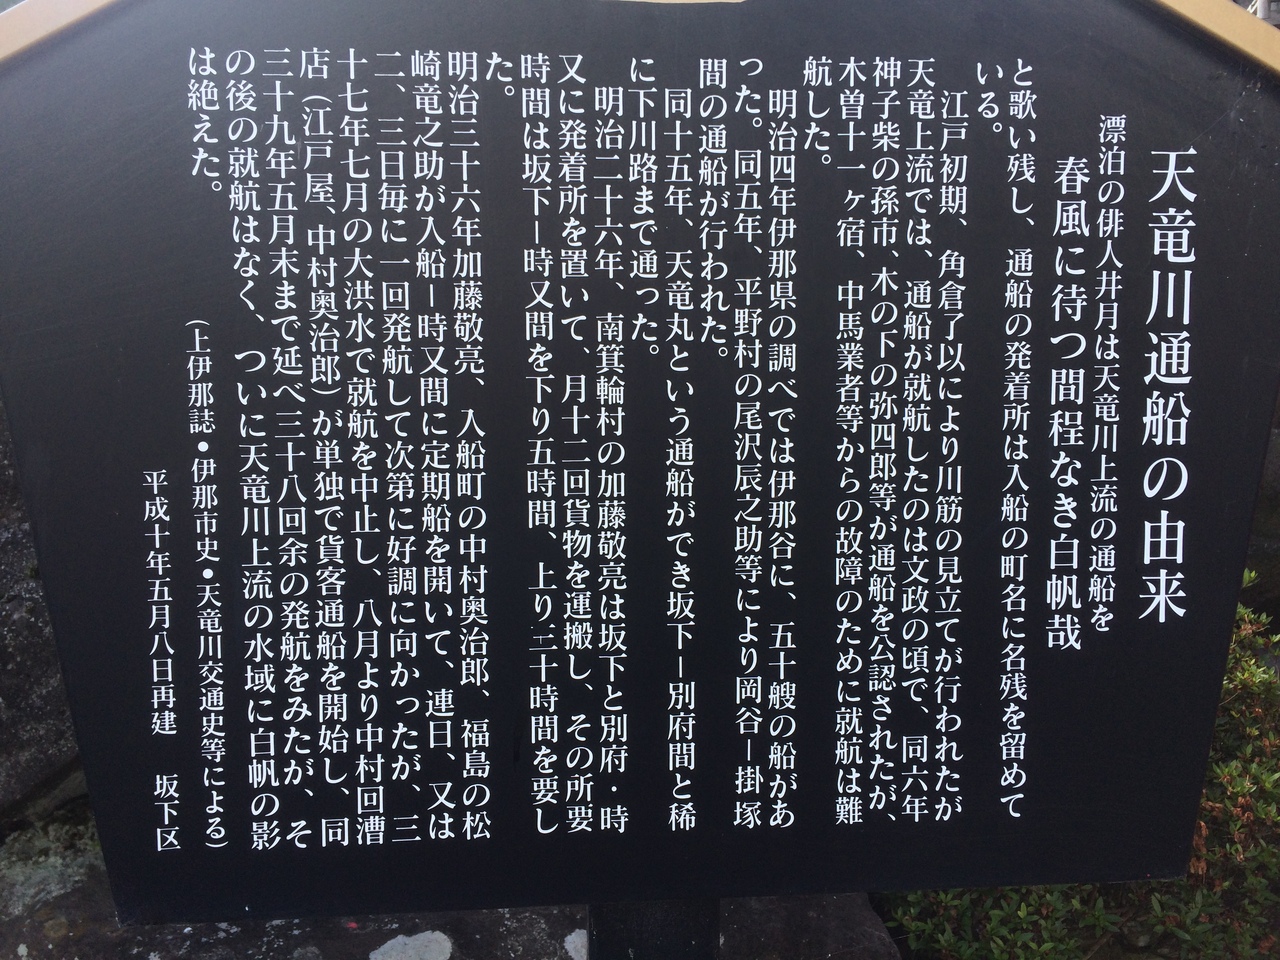 天竜川通船の由来
漂泊の俳人井月は天竜川上流の通船を
春風に待つ間程なき白帆哉
と歌い残し、通船の発着所は入船の町名に名残を留めて
いる。
江戸初期、角倉了以により川筋の見立てが行われたが
天竜上流では、通船が就航したのは文政の頃で、同六年
神子柴の孫市、木の下の弥四郎等が通船を公認されたが、
木曽十一ヶ宿、中馬業者等からの故障のために就航は難
航した。
明治四年伊那県の調べでは伊那谷に、五十艘の船があ
った。同五年、平野村の尾沢辰之助等により岡谷ー掛塚
間の通船が行われた。
同十五年、天竜丸という通船ができ坂下ー別府間と稀
に下川路まで通った。
明治二十六年、南箕輪村の加藤敬亮は坂下と別府・時
又に発着所を置いて、月十二回貨物を運搬し、その所要
時間は坂下ー時又間を下り五時間、上り三十時間を要し
た。
明治三十六年加藤敬亮、入船町の中村奥治郎、福島の松
崎竜之助が入船ー時又間に定期船を開いて、連日、又は
二、三日毎に一回発航して次第に好調に向かったが、三
十七年七月の大洪水で就航を中止し、八月より中村回漕
店（江戸屋、中村奥治郎）が単独で貨客通船を開始し、同
三十九年五月末まで延べ三十八回余の発航をみたが、そ
の後の就航はなく、ついに天竜川上流の水域に白帆の影
は絶えた。
（上伊那誌・伊那市史・天竜川交通史等による）
平成十年五月八日再建　坂下区